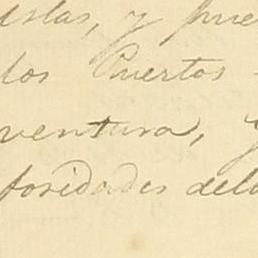 islas, y pue
los Puertos
ventura, y
toridades delo